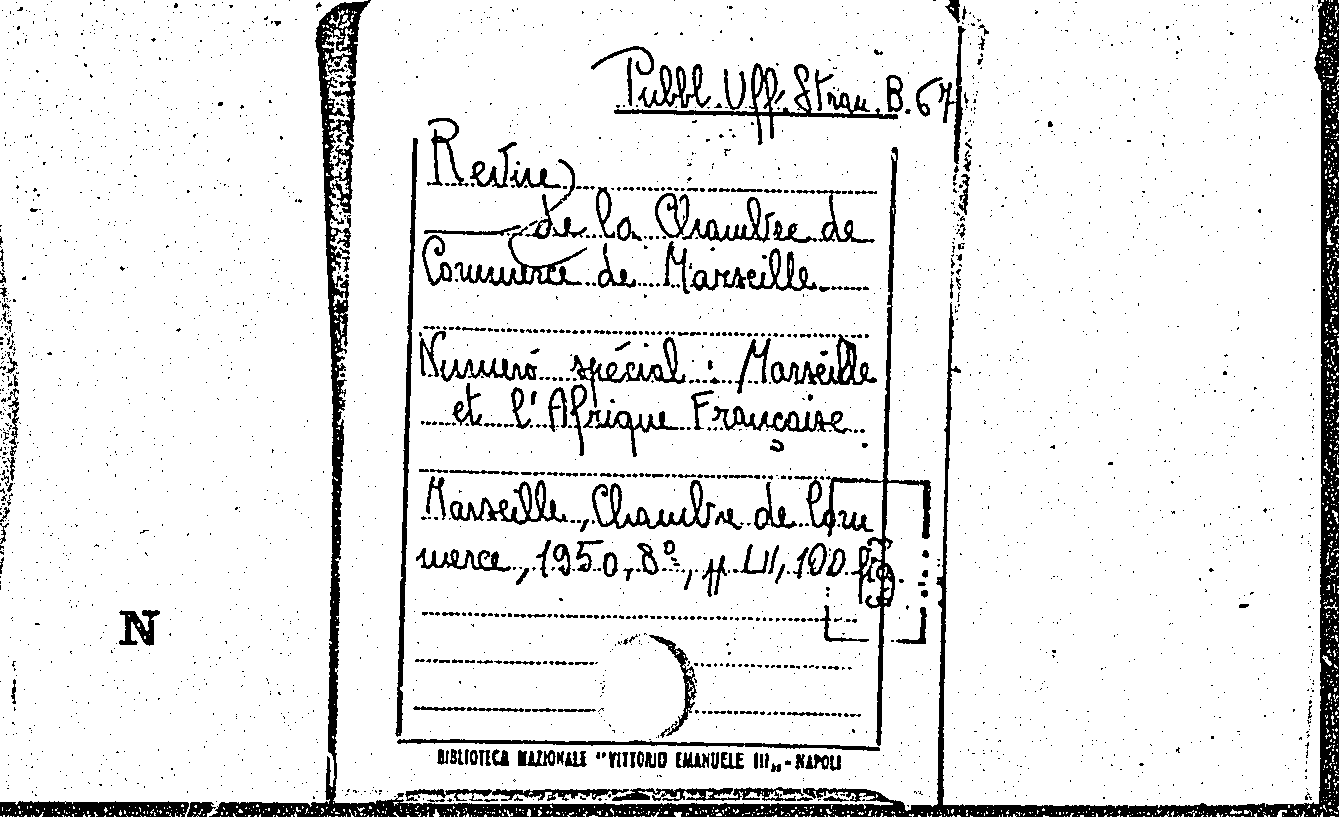 Pubbl. Uff. Stran. B. 67
Revue
de la Chambre de
Commerce de Marseille
Numéro spécial : Marseille
et l'Afrique Française
Marseille, Chambre de Com
merce, 1950, 8º, pp LII, 100 fig.
N
BIBLIOTECA NAZIONALE "VITTORIO EMANUELE III„ - NAPOLI